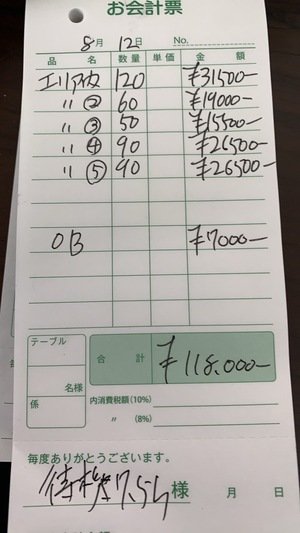 お会計票
8月 12日 No.
品名 数量 単価 金額
エリア① 120 ¥31500-
〃 ② 60 ¥19000-
〃 ③ 50 ¥15500-
〃 ④ 90 ¥26500-
〃 ⑤ 90 ¥26500-
OB ¥7000-
テーブル
名様
係
合計 ¥118.000-
内消費税額(10%)
〃 (8%)
毎度ありがとうございます。
様 月 日